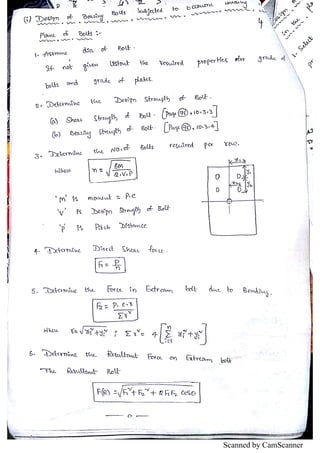 (i) Design of Bearing Bolts Subjected to Eccentric
Plane of Bolts :-
1. Assume dia of Bolt.
If not given about the required properties for grade of
bolts and grade of plates.
2. Determine the Design Strength of Bolt.
(a) Shear Strength of Bolt. [Page 10.3.3]
(b) Bearing Strength of Bolt [Page 10.3.4]
3. Determine the No. of Bolts required per row.
Where n = √6M/2.V.P
'm' is moment = P.e
'V' is Design Strength of Bolt
'p' is Pitch Distance
4. Determine Direct Shear force.
F1 = P/n
5. Determine the Force in Extream bolt due to Bending.
F2 = P.e.r/Σr²
Where r = √xi²+yi² ; Σr² = 4[Σ xi²+yi²]
6. Determine the Resultant Force on Extream bolt
The Resultant Bolt
F(R) = √F1²+F2²+2F1F2 cosθ
Scanned by CamScanner